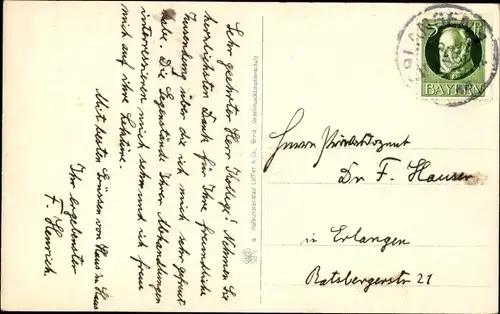 Sehr geehrter Herr Kollege! Nehmen Sie
herzlichsten Dank für Ihre freundliche
Zusendung über die ich mich sehr gefreut
habe. Die Gegenstände Ihrer Abhandlungen
interessieren mich sehr und ich freue
mich auf ihre Lektüre.
Mit besten Grüssen von Haus zu Haus
Ihr ergebenster
F. Henrich.
Löffler & Co., Greiz.
BAYERN
Herrn Privatdozent
Dr F. Hauser
in Erlangen
Ratsbergerstr 21